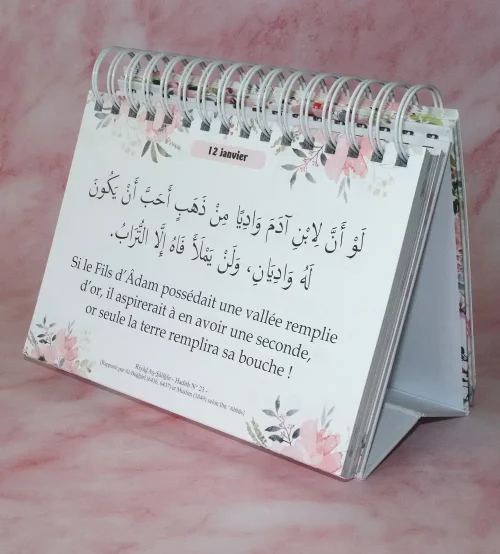 12 janvier
لَوْ أَنَّ لِابْنِ آدَمَ وَادِيًا مِنْ ذَهَبٍ أَحَبَّ أَنْ يَكُونَ
لَهُ وَادِيَانِ، وَلَنْ يَمْلَأَ فَاهُ إِلَّا التُّرَابُ.
Si le Fils d'Âdam possédait une vallée remplie
d'or, il aspirerait à en avoir une seconde,
or seule la terre remplira sa bouche !
Riyâd As-Sâlihîn - Hadith N° 23 -
(Rapporté par Al-Bukhârî (6436, 6437) et Muslim (1049) selon Ibn 'Abbâs)